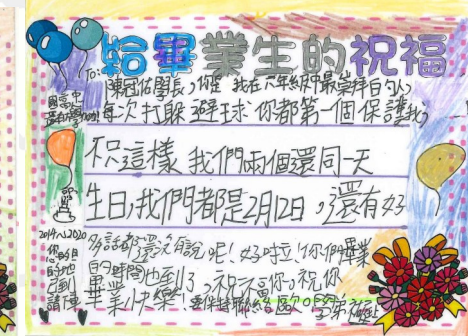 給畢業生的祝福
To:
陳冠佑學長,你是我在六年級中最崇拜的人,
每次打躲避球你都第一個保護我,
不只這樣我們兩個還同一天
生日,我們都是2月12日,還有好
多話都還沒有說呢!好啦!你們畢業
的時間也到了,祝福你,祝你
畢業快樂
國高中
還有
2014~2020
您的目
的地
已到
請下車